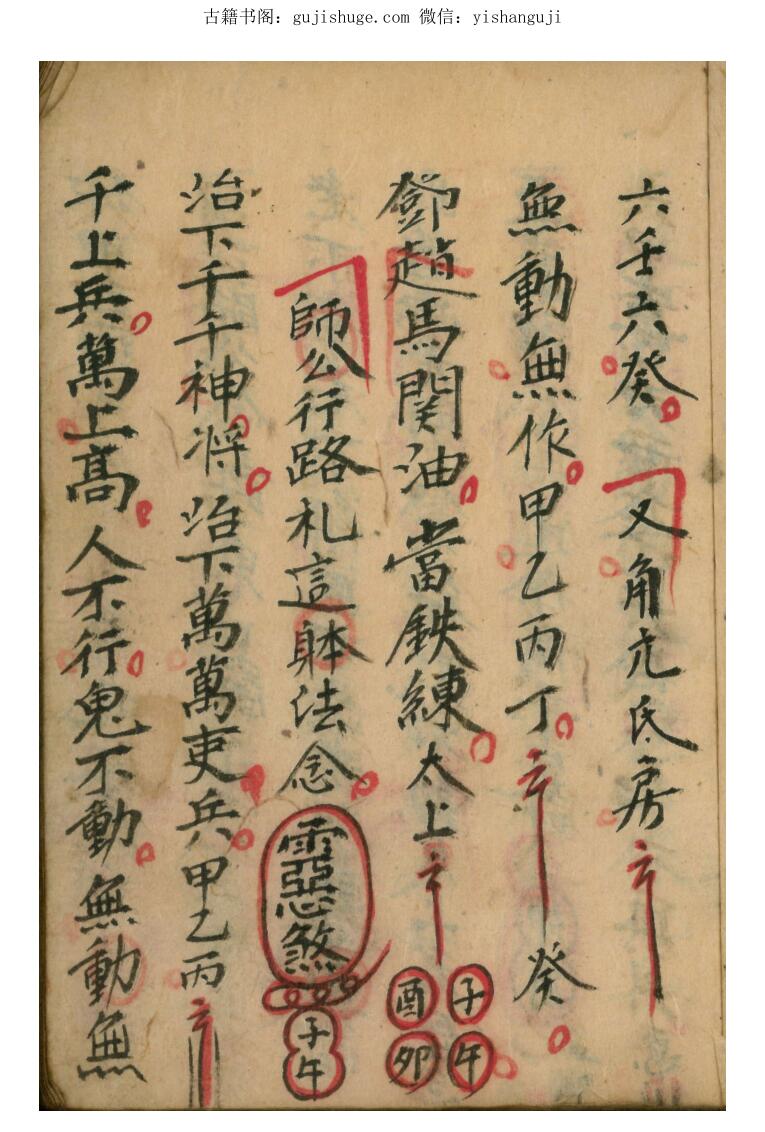 古籍书阁：gujishuge.com 微信：yishanguji
六壬六癸 又角亢氐房
無動無作甲乙丙丁 癸
鄧趙馬関油 當鉄練太上 子午 酉卯
師公行路札這躰法念 煞 子午
治下千千神将治下萬萬吏兵甲乙丙
千上兵萬上髙人不行鬼不動無動無